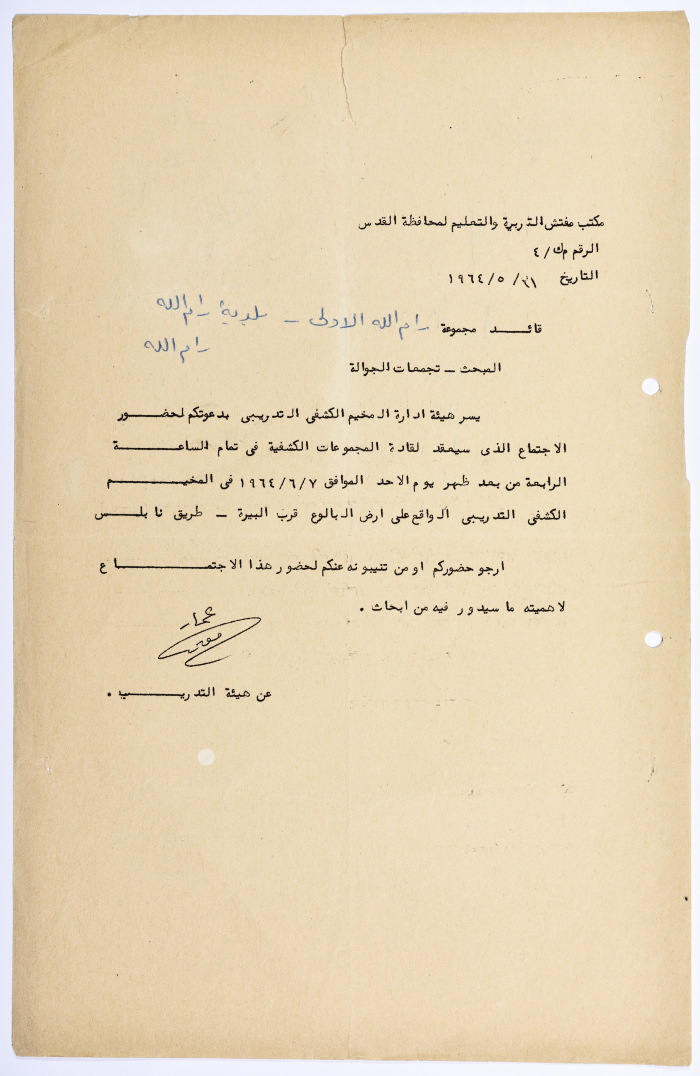 مكتب مفتش التربية والتعليم لمحافظة القدس
الرقم م ك/ ٤
التاريخ ٣١/ ٥ /١٩٦٤
قائــــد مجموعة رام الله الاولى – بلدية رام الله
رام الله
المبحث – تجمعات الجوالة
يسر هيئة ادارة المخيم الكشفي التدريبي بدعوتكم لحضـــــور
الاجتماع الذى سيعقد لقادة المجموعات الكشفية في تمام الساعـــــــة
الرابعة من بعد ظهر يوم الاحد الموافق ١٩٦٤/٦/٧ في المخيـــــــم
الكشفي التدريبي الواقع على ارض البالوع قرب البيرة – طريق نابلـــس
ارجو حضوركم او من تنيبونه عنكم لحضور هذا الاجتمــــــــــاع
لاهميته ما سيدور فيه من ابحاث .
عن هيئة التدريـــــــب .